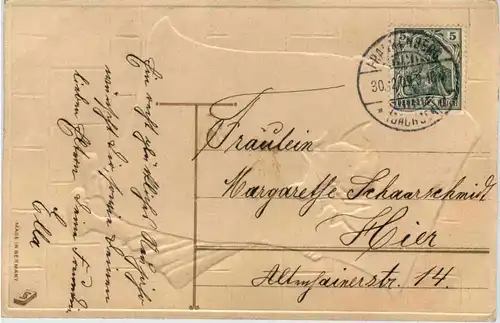 Ein recht glückliches Neujahr
wünscht Dir, sowie Deinen
lieben Eltern Deine Freundin
Ella
5
FRANKENBERG
30.12.09. 8-10
* (SACHSEN)
DEUTSCHES REICH
Fräulein
Margarethe Schaarschmidt
Hier
Altenhainerstr. 14.
MADE IN GERMANY